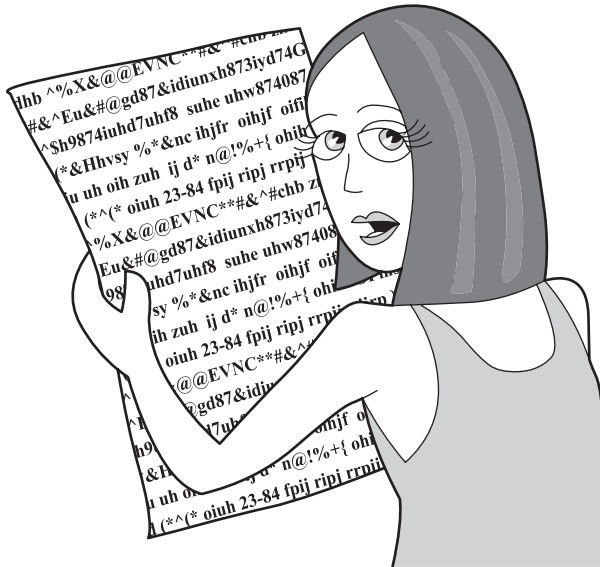 ^%X&@@EVNC**#&^#chb
Jhb ^%X&@@EVNC**#&^#chb
#&^Eu&#@gd87&idiunxh873iyd74G
^$h9874iuhd7uhf8 suhe uhw874087
(*&Hhvsy %*&nc ihjfr oihjf oifi
u uh oih zuh ij d* n@!%+{ ohih
(*^(* oiuh 23-84 fpij ripj rrpij
^%X&@@EVNC**#&^#chb
Eu&#@gd87&idiunxh873iyd74
98 uhd7uhf8 suhe uhw87408
sy %*&nc ihjfr oihjf oif
ih zuh ij d* n@!%+{ ohi
oiuh 23-84 fpij ripj rrpij
@@EVNC**#&^#
@gd87&idiu
d7uh
h9 oihjf o
&H n@!%+{ ohi
u uh o ij d* n@!%+{ ohi
(*^(* oiuh 23-84 fpij ripj rrpij